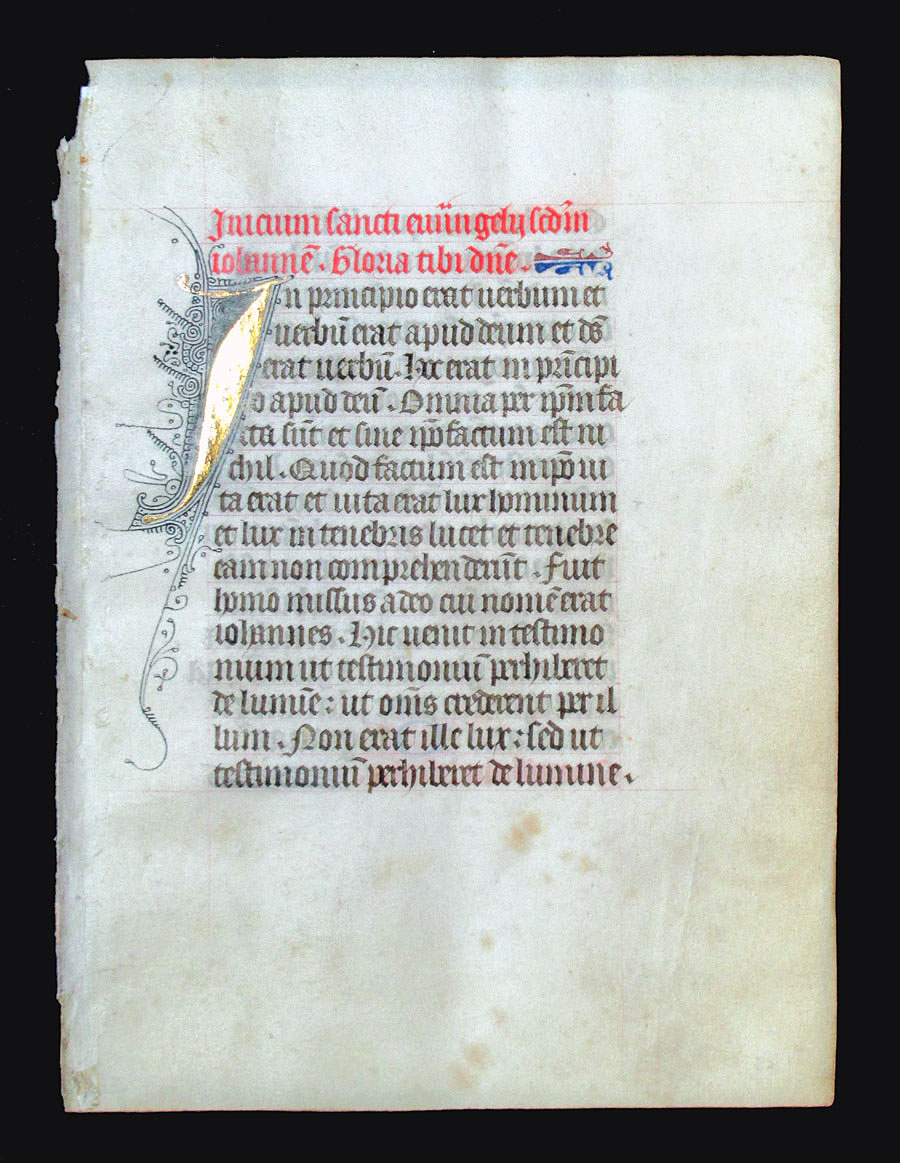 Inicium sancti euuangelij scdm̄
iohannē. Gloria tibi dn̄e.
In principio erat uerbum et
uerbū erat apud deum et ds̄
erat uerbū. Hoc erat in prīncipi
o apud deū. Omnia per ip̄m fa
cta sūt et sine ip̄o factum est ni
chil. Quod factum est in ip̄o ui
ta erat et uita erat lux hominum
et lux in tenebris lucet et tenebre
eam non comprehenderūt. Fuit
homo missus a deo cui nomē erat
iohannes. Hic uenit in testimo
nium ut testimoniū perhiberet
de lumīe: ut om̄s crederent per il
lum. Non erat ille lux: sed ut
testimoniū perhiberet de lumine.